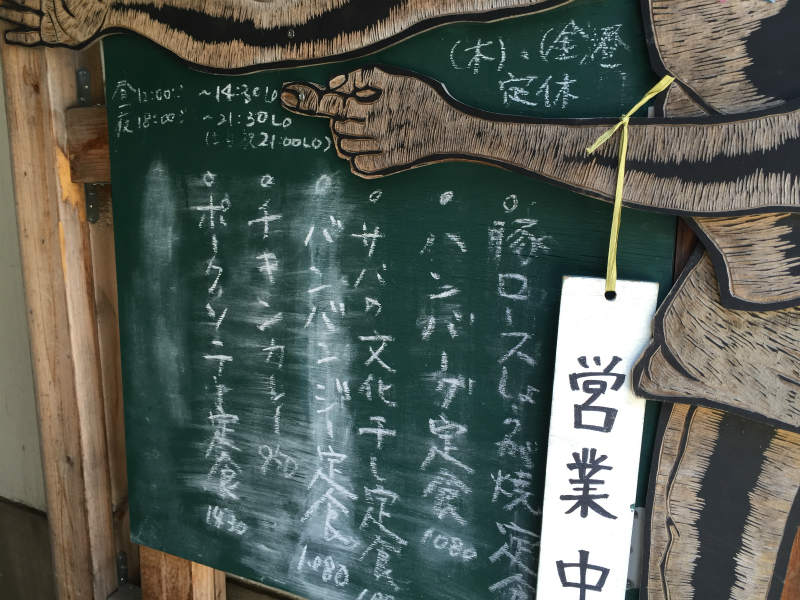 (木)、(金)
定休
昼12:00 ~14:30LO
夜18:00 ~21:30LO
21:00LO)
○豚ロースしょうが焼定食
○ハンバーグ定食 1080
○サバの文化干し定食
○バンバンジー定食 1080
○チキンカレー
○ポークソテー定食 1430
営業中